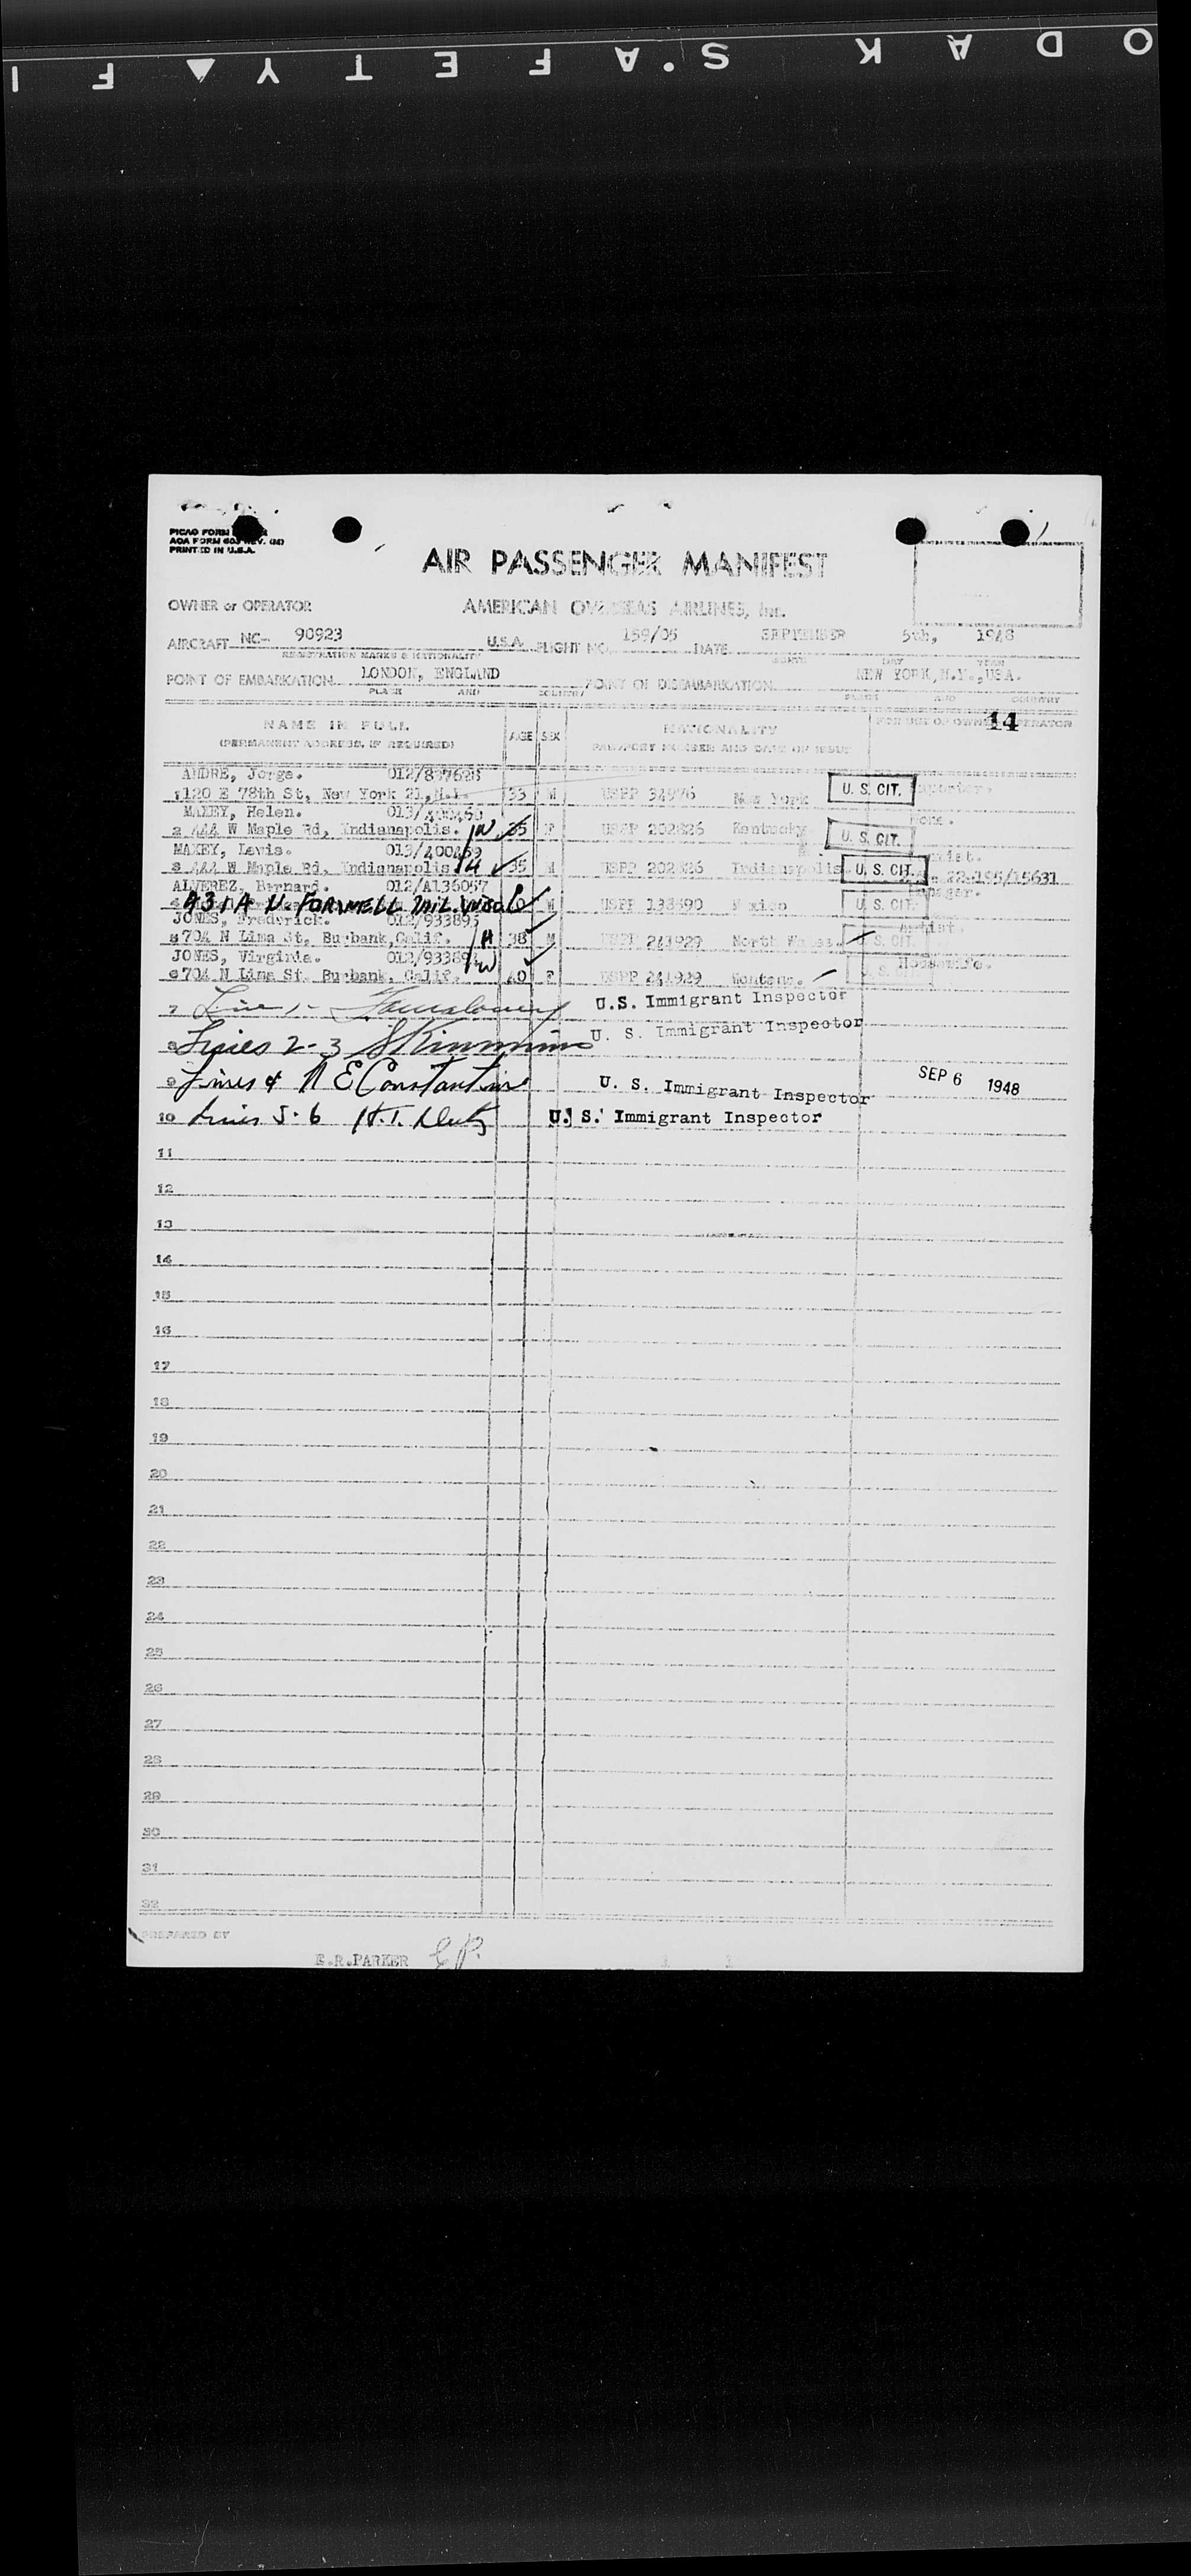 KODAK S'AFETY FI
PICAO FORM
AOA FORM 603 REV.
PRINTED IN U.S.A.
AIR PASSENGER MANIFEST
OWNER or OPERATOR AMERICAN OVERSEAS AIRLINES, Inc.
AIRCRAFT NC- 90923 U.S.A. FLIGHT NO. 159/05 DATE SEPTEMBER 5th, 1948
REGISTRATION MARKS & NATIONALITY MONTH DAY YEAR
POINT OF EMBARKATION LONDON, ENGLAND POINT OF DISEMBARKATION NEW YORK, N.Y., USA.
PLACE AND COUNTRY PLACE AND COUNTRY
NAME IN FULL AGE SEX NATIONALITY FOR USE OF OWNER OPERATOR 14
(PERMANENT ADDRESS, IF REQUIRED) PASSPORT NUMBER AND DATE OF ISSUE
ANDRE, Jorge. 012/837628
1 120 E 78th St, New York 21, N.Y. 33 M USPP 34976 New York U. S. CIT.
MAXEY, Helen. 013/400459
2 444 W Maple Rd, Indianapolis. W 35 F USPP 202826 Kentucky U. S. CIT.
MAXEY, Lewis. 013/400459
3 444 W Maple Rd, Indianapolis. H 35 M USPP 202826 Indianapolis U. S. CIT. 22-195/15631
ALVEREZ, Bernard. 012/A136057
4 M USPP 138690 Mexico U. S. CIT.
JONES, Frederick. 012/933895
5 704 N Lima St, Burbank, Calif. H 38 M USPP 241929 North Wales. U. S. CIT. Artist.
JONES, Virginia.
6 704 N Lima St, Burbank, Calif. W 40 F USPP 241929 Montana. U. S. Housewife.
7 Line 1- U.S. Immigrant Inspector
8 Lines 2-3 U. S. Immigrant Inspector
9 Lines 4 N E Constantine U. S. Immigrant Inspector SEP 6 1948
10 Lines 5-6 U. S. Immigrant Inspector
11
12
13
14
15
16
17
18
19
20
21
22
23
24
25
26
27
28
29
30
31
32
PREPARED BY
E.R.PARKER